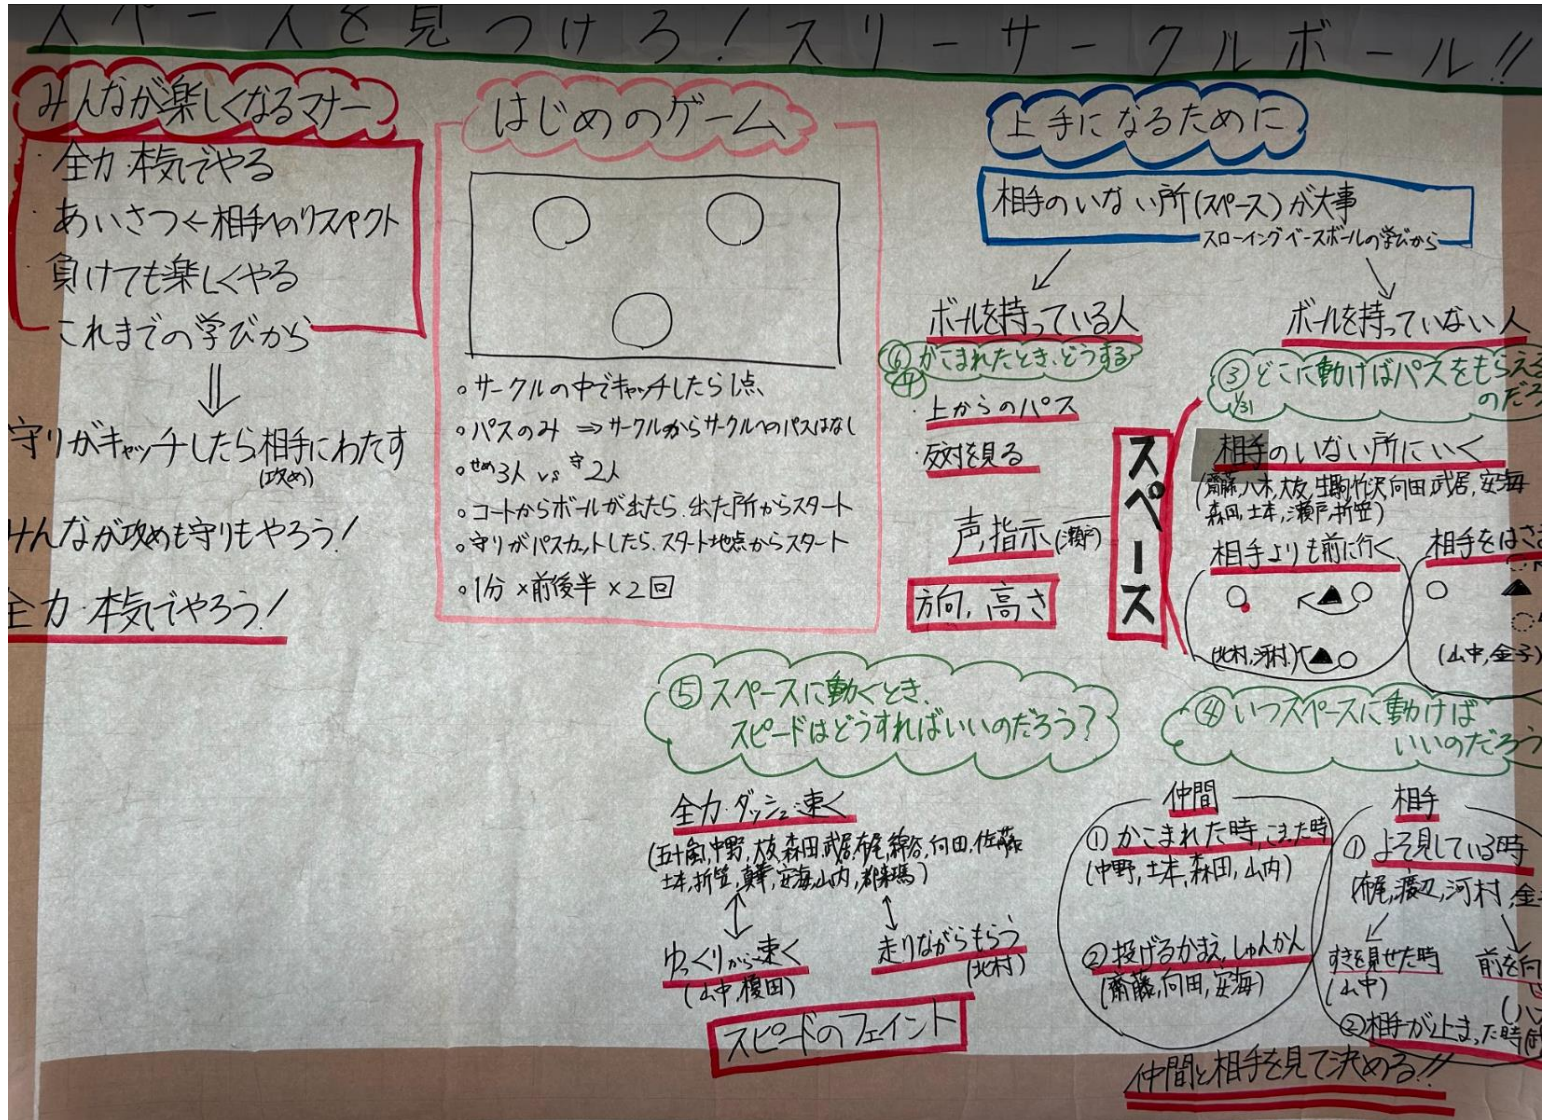 スペースを見つけろ！スリーサークルボール!!
みんなが楽しくなるマナー
・全力 本気でやる
・あいさつ←相手へのリスペクト
・負けても楽しくやる
これまでの学びから
⇓
守りがキャッチしたら相手にわたす
(攻め)
みんなが攻めも守りもやろう！
全力・本気でやろう！
はじめのゲーム
○サークルの中でキャッチしたら1点
○パスのみ ⇒サークルからサークルへのパスはなし
○せめ3人 vs 守2人
○コートからボールが出たら、出た所からスタート
○守りがパスカットしたら、スタート地点からスタート
○1分×前後半×2回
上手になるために
相手のいない所(スペース)が大事
スローイングベースボールの学びから
ボールを持っている人
⑥かこまれたとき、どうする
・上からのパス
・反対を見る
声,指示(瀬戸)
方向,高さ
スペース
ボールを持っていない人
③どこに動けばパスをもらえる
1/31
のだろ
相手のいない所にいく
(齋藤,八木,大友,生駒,竹沢,向田,武居,安海
森田,土本,瀬戸,折笠)
相手よりも前に行く
(北村,河村)
相手をはさ
(山中,金子)
⑤スペースに動くとき、
スピードはどうすればいいのだろう？
全力・ダッシュ・速く
(五十嵐,中野,大友,森田,武居,布尾,綿谷,向田,佐藤
土本,折笠,安海,山内,)
ゆっくりから速く
(山中,榎田)
走りながらもらう
(北村)
スピードのフェイント
④いつスペースに動けば
いいのだろう
仲間
①かこまれた時,こまった時
(中野,土本,森田,山内)
②投げるかまえ,しゅんかん
(齋藤,向田,安海)
相手
①よそ見している時
(布尾,渡辺,河村,金
すきを見せた時
(山中)
前を向
②相手が止まった時
仲間と相手を見て決める!!